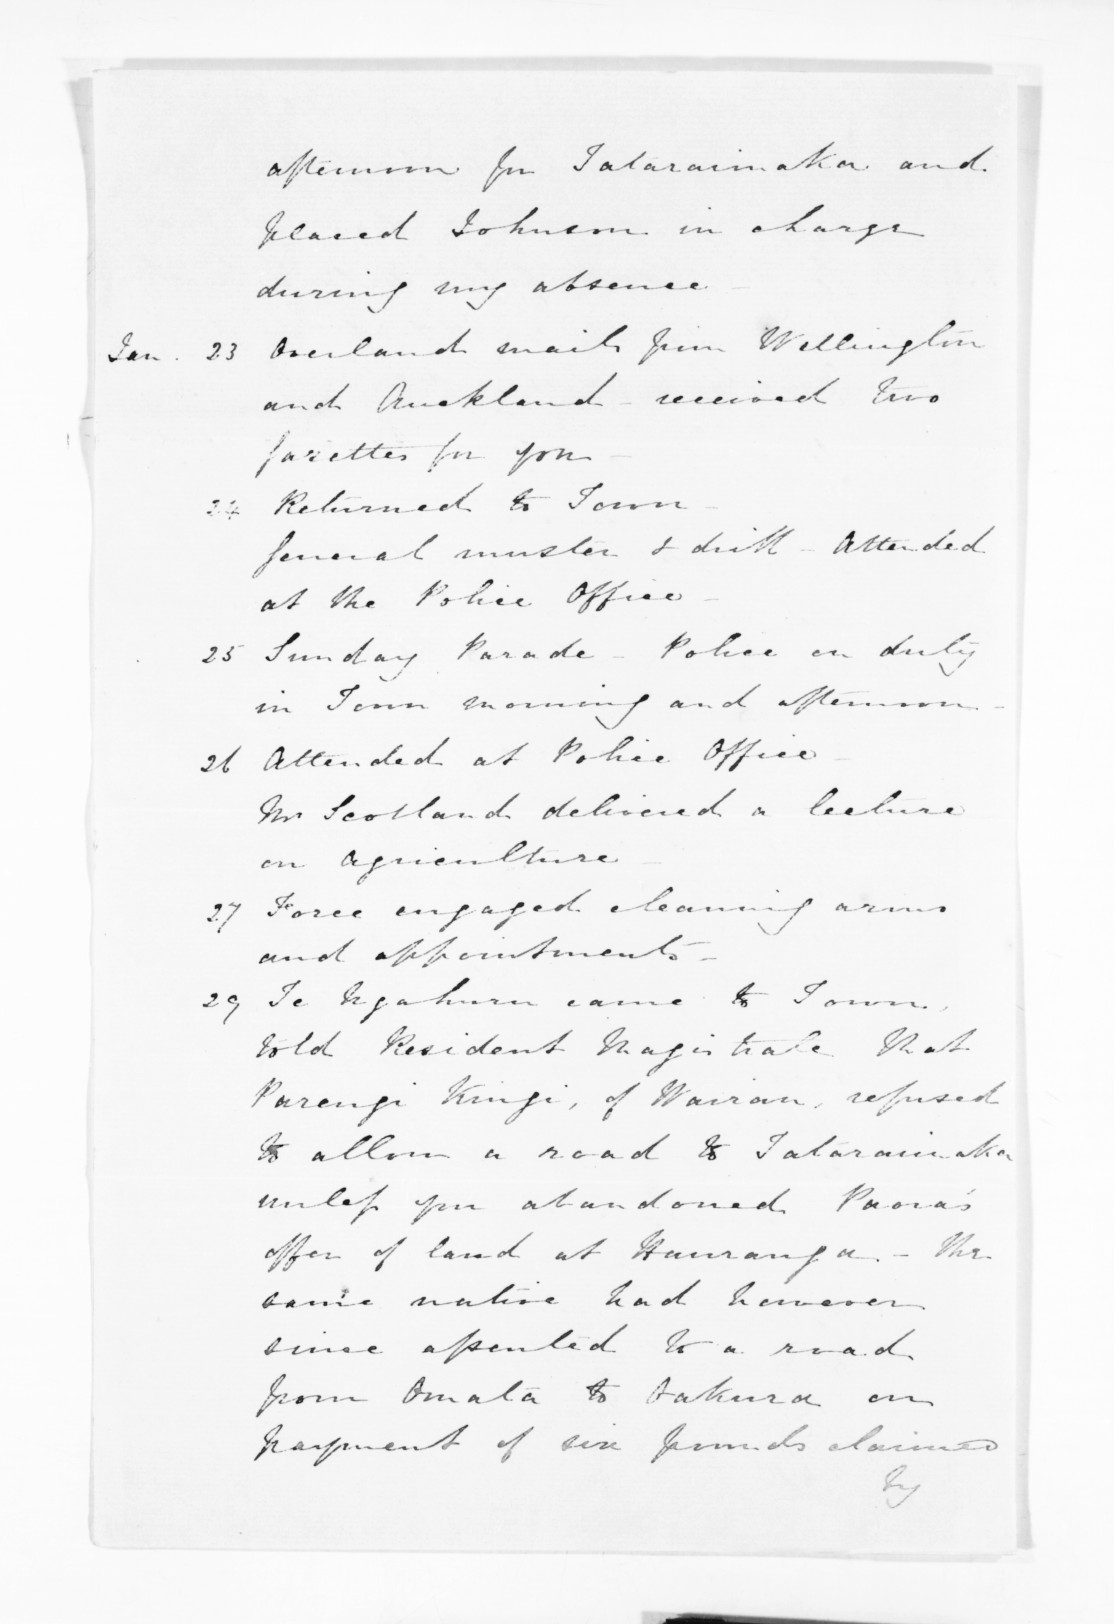 afternoon for Tatarainaka and
placed Johnson in charge
during my absence -
Jan. 23 Overland mails from Wellington
and Auckland - received two
Gazettes for you -
24 Returned to Town -
General muster & drill - Attended
at the Police Office -
25 Sunday Parade - Police on duty
in Town morning and afternoon -
26 Attended at Police Office -
Mr Scotland delivered a lecture
on Agriculture -
27 Force engaged cleaning arms
and appointments -
29 Te Ngahuru came to Town,
told Resident Magistrate that
Parengi Kingi, of Wairau, refused
to allow a road to Tatarainaka
unless you abandoned Paora's
offer of land at Hauranga. - The
same native had however
since assented to a road
from Omata to Oakura on
payment of six pounds claimed
by